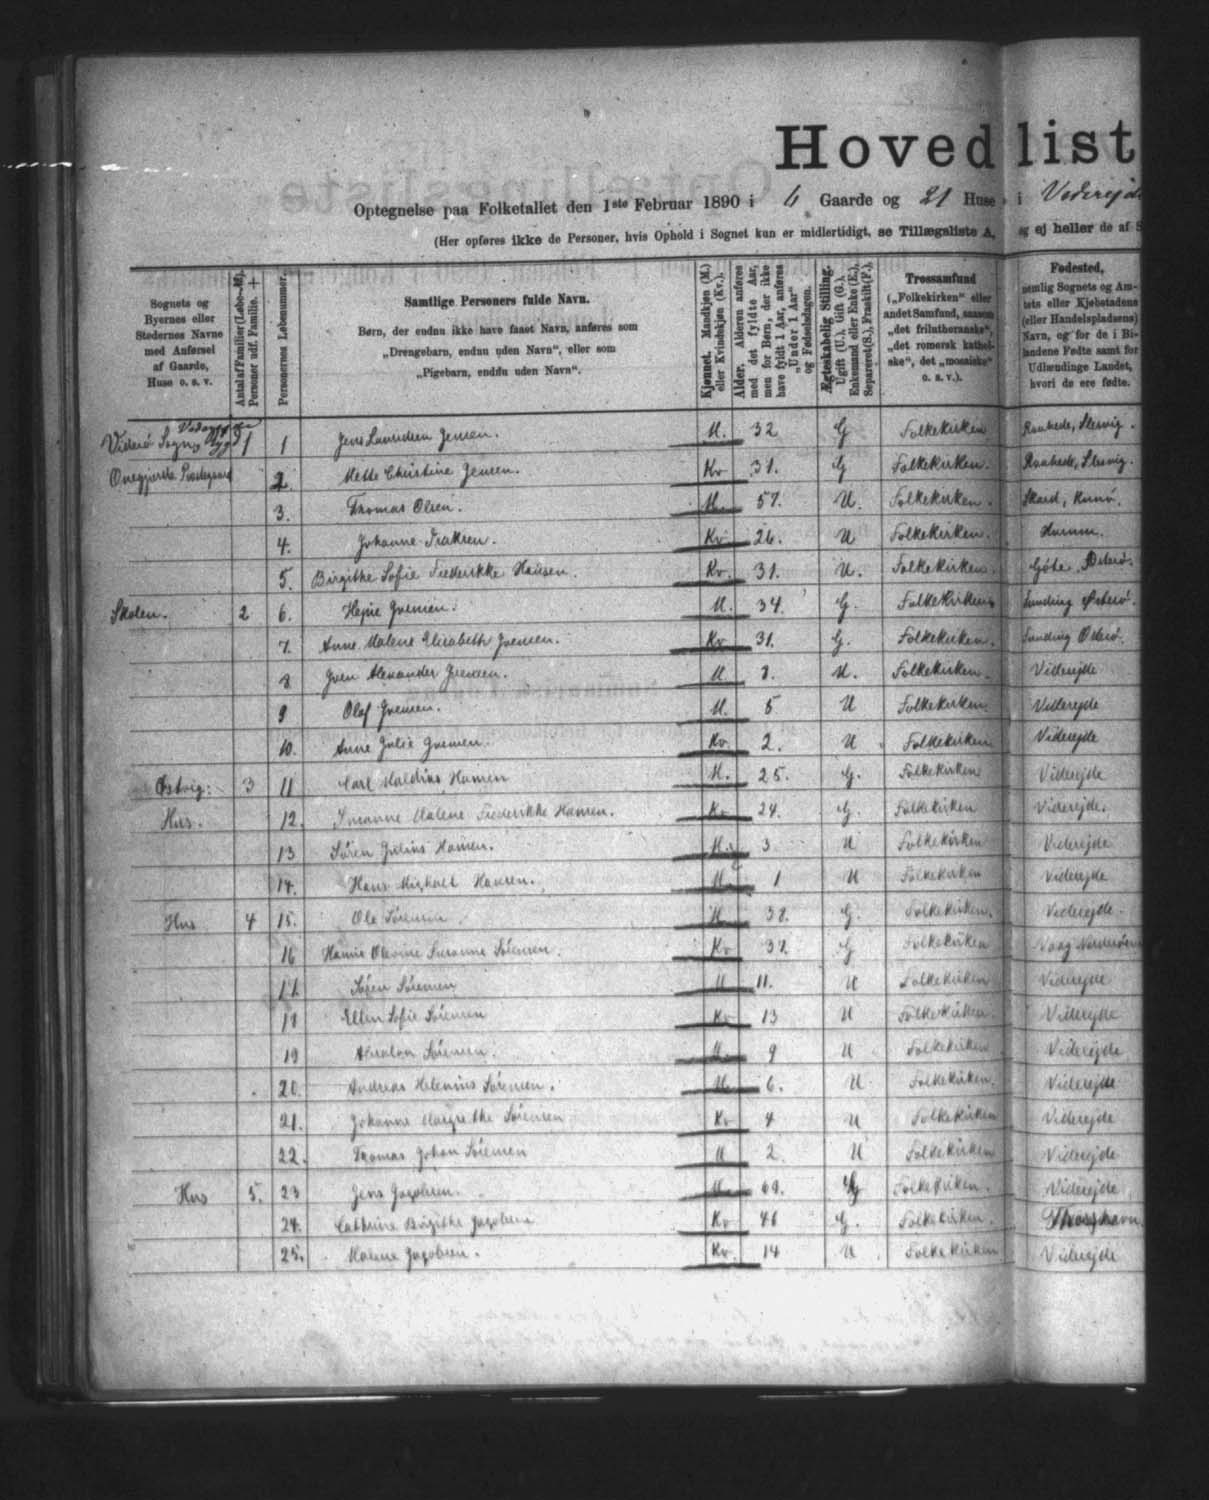 Hovedlist
Optegnelse paa Folketallet den 1ste Februar 1890 i 6 Gaarde og 21 Huse i Viderejde
(Her opføres ikke de Personer, hvis Ophold i Sognet kun er midlertidigt, se Tillægsliste A, og ej heller de af S
Sognets og Byernes eller Stedernes Navne med Anførsel af Gaarde, Huse o. s. v.
Antal af Familier (Løbe-№). Personer udf. Familie. +
Personernes Løbenummer.
Samtlige Personers fulde Navn.
Børn, der endnu ikke have faaet Navn, anføres som
„Drengebarn, endnu uden Navn“, eller som
„Pigebarn, endnu uden Navn“.
Kjønnet. Mandkjøn (M.) eller Kvindekjøn (Kv.).
Alder. Alderen anføres med det fyldte Aar, men for Børn, der ikke have fyldt 1 Aar, anføres „Under 1 Aar“ og Fødselsdagen.
Ægteskabelig Stilling. Ugift (U.), Gift (G.), Enkemand eller Enke (E.), Separeret (S.), Fraskilt (F.).
Trossamfund („Folkekirken“ eller andet Samfund, saasom „det frilutheranske“, „det romersk katholske“, det „mosaiske“ o. s. v.).
Fødested, nemlig Sognets og Amtets eller Kjøbstadens (eller Handelspladsens) Navn, og for de i Bilandene Fødte samt for Udlændinge Landet, hvori de ere fødte.
Viderø Sogn 1 1 Jens Lauridsen Jensen. M. 32 G Folkekirken Slesvig.
2. Mette Christine Jensen. Kv 31. G Folkekirken. Slesvig.
3. Thomas Olsen. M 57. U. Folkekirken. Skard, Kunø.
4. Johanne Kv 26. U Folkekirken.
5. Birgithe Sofie Frederikke Hansen. Kv. 31. U. Folkekirken. Gøte, Østerø.
Skolen. 2 6. Joensen. M. 34. G. Folkekirken Funding Østerø.
7. Anne Malene Elisabeth Joensen. Kv 31. G. Folkekirken. Funding Østerø.
8 Joen Alexander Joensen. M. 8. U. Folkekirken. Viderejde
9 Olaf Joensen. M. 5 U Folkekirken. Viderejde
10. Anne Julie Joensen. Kv. 2. U Folkekirken Viderejde
Østvig: 3 11 Carl Hansen M. 25. G. Folkekirken Viderejde
Hus. 12. Susanne Malene Frederikke Hansen. Kv 24. G. Folkekirken Viderejde.
13 Søren Julius Hansen. M. 3 U Folkekirken Viderejde
14. Hans Hansen. M 1 U Folkekirken Viderejde
Hus 4 15. Ole Sørensen M 38. G. Folkekirken. Viderejde.
16 Susanne Sørensen. Kv 37. G Folkekirken Norderøerne
17. Søren Sørensen M 11. U Folkekirken Viderejde
18 Ellen Sofie Sørensen Kv 13 U Folkekirken. Viderejde
19 Absalon Sørensen. M. 9 U Folkekirken Viderejde
20. Andreas Sørensen. M. 6. U Folkekirken. Viderejde
21. Johanne Margrethe Sørensen Kv 4 U Folkekirken Viderejde
22. Thomas Johan Sørensen M 2 U Folkekirken Viderejde
Hus 5. 23 Jens Jagobsen. M. 69. G Folkekirken. Viderejde
24. Cathrine Birgithe Jagobsen Kv 46 G. Folkekirken. Thorshavn.
25. Malene Jagobsen. Kv. 14 U Folkekirken Viderejde